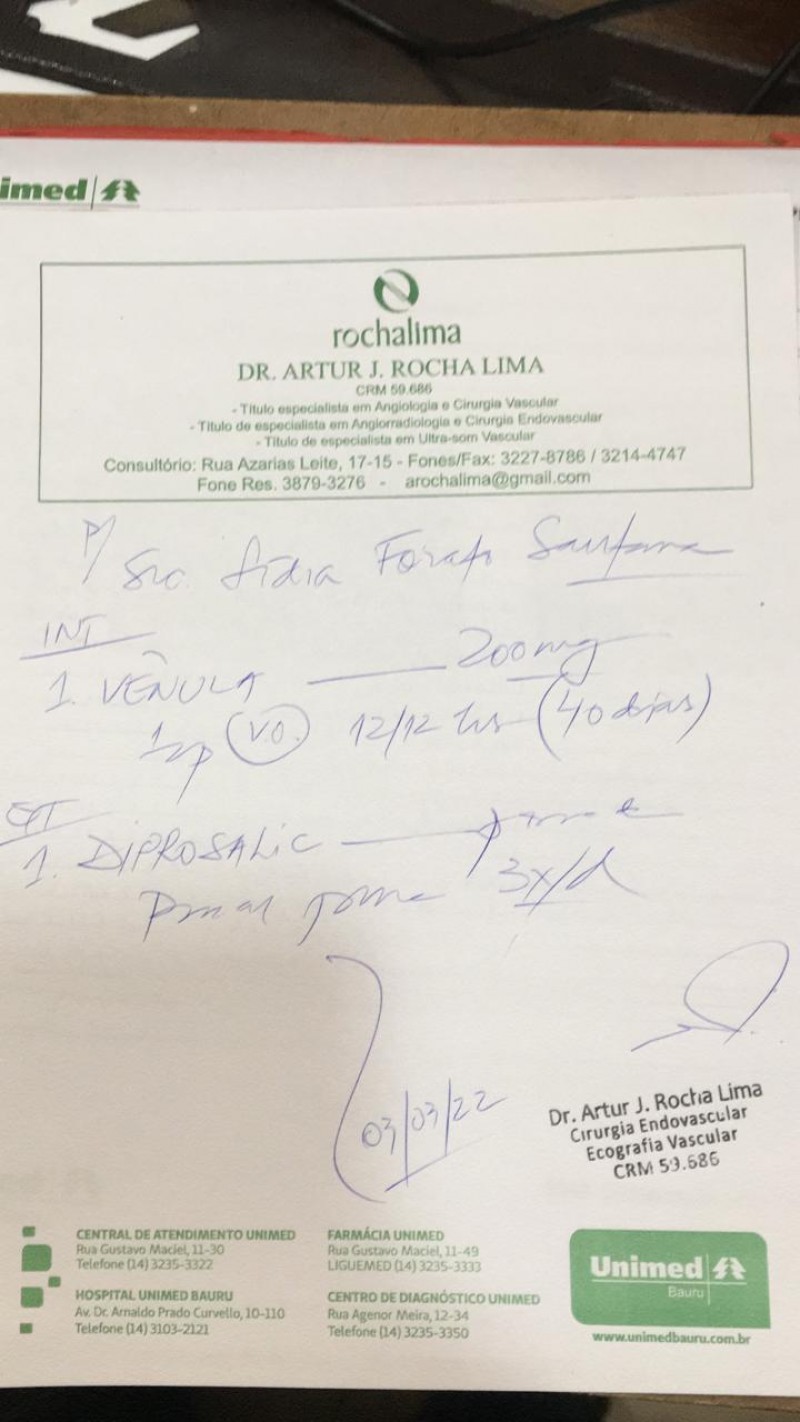 imed
rochalima
DR. ARTUR J. ROCHA LIMA
CRM 59.686
- Título especialista em Angiologia e Cirurgia Vascular
- Título de especialista em Angiorradiologia e Cirurgia Endovascular
- Título de especialista em Ultra-som Vascular
Consultório: Rua Azarias Leite, 17-15 - Fones/Fax: 3227-8786 / 3214-4747
Fone Res. 3879-3276 - arochalima@gmail.com
P/ Sra. Santana
INT
1. VÊNULA 200mg
1cp (V.O.) 12/12 hs (40 dias)
EXT
1. DIPROSALIC
3x/d
03/03/22
Dr. Artur J. Rocha Lima
Cirurgia Endovascular
Ecografia Vascular
CRM 59.686
CENTRAL DE ATENDIMENTO UNIMED
Rua Gustavo Maciel, 11-30
Telefone (14) 3235-3322
HOSPITAL UNIMED BAURU
Av. Dr. Arnaldo Prado Curvello, 10-110
Telefone (14) 3103-2121
FARMÁCIA UNIMED
Rua Gustavo Maciel, 11-49
LIGUEMED (14) 3235-3333
CENTRO DE DIAGNÓSTICO UNIMED
Rua Agenor Meira, 12-34
Telefone (14) 3235-3350
Unimed
Bauru
www.unimedbauru.com.br